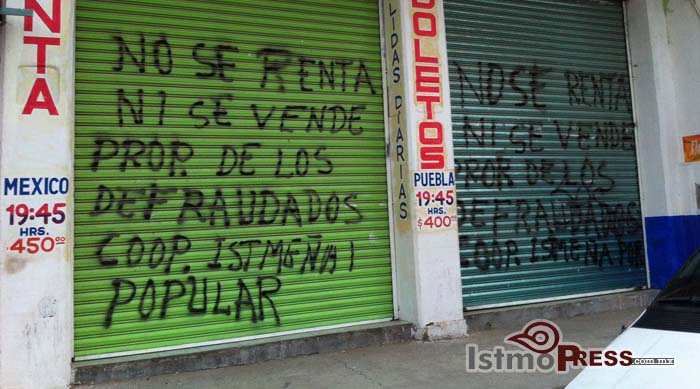 NTA
MEXICO
19:45
HRS.
$450.00
NO SE RENTA
NI SE VENDE
PROP. DE LOS
DEFRAUDADOS
COOP. ISTMEÑA
POPULAR
SALIDAS DIARIAS
BOLETOS
PUEBLA
19:45
HRS.
$400.00
NO SE RENTA
NI SE VENDE
PROP. DE LOS
DEFRAUDADOS
COOP. ISTMEÑA POPULAR
IstmoPRESS.com.mx